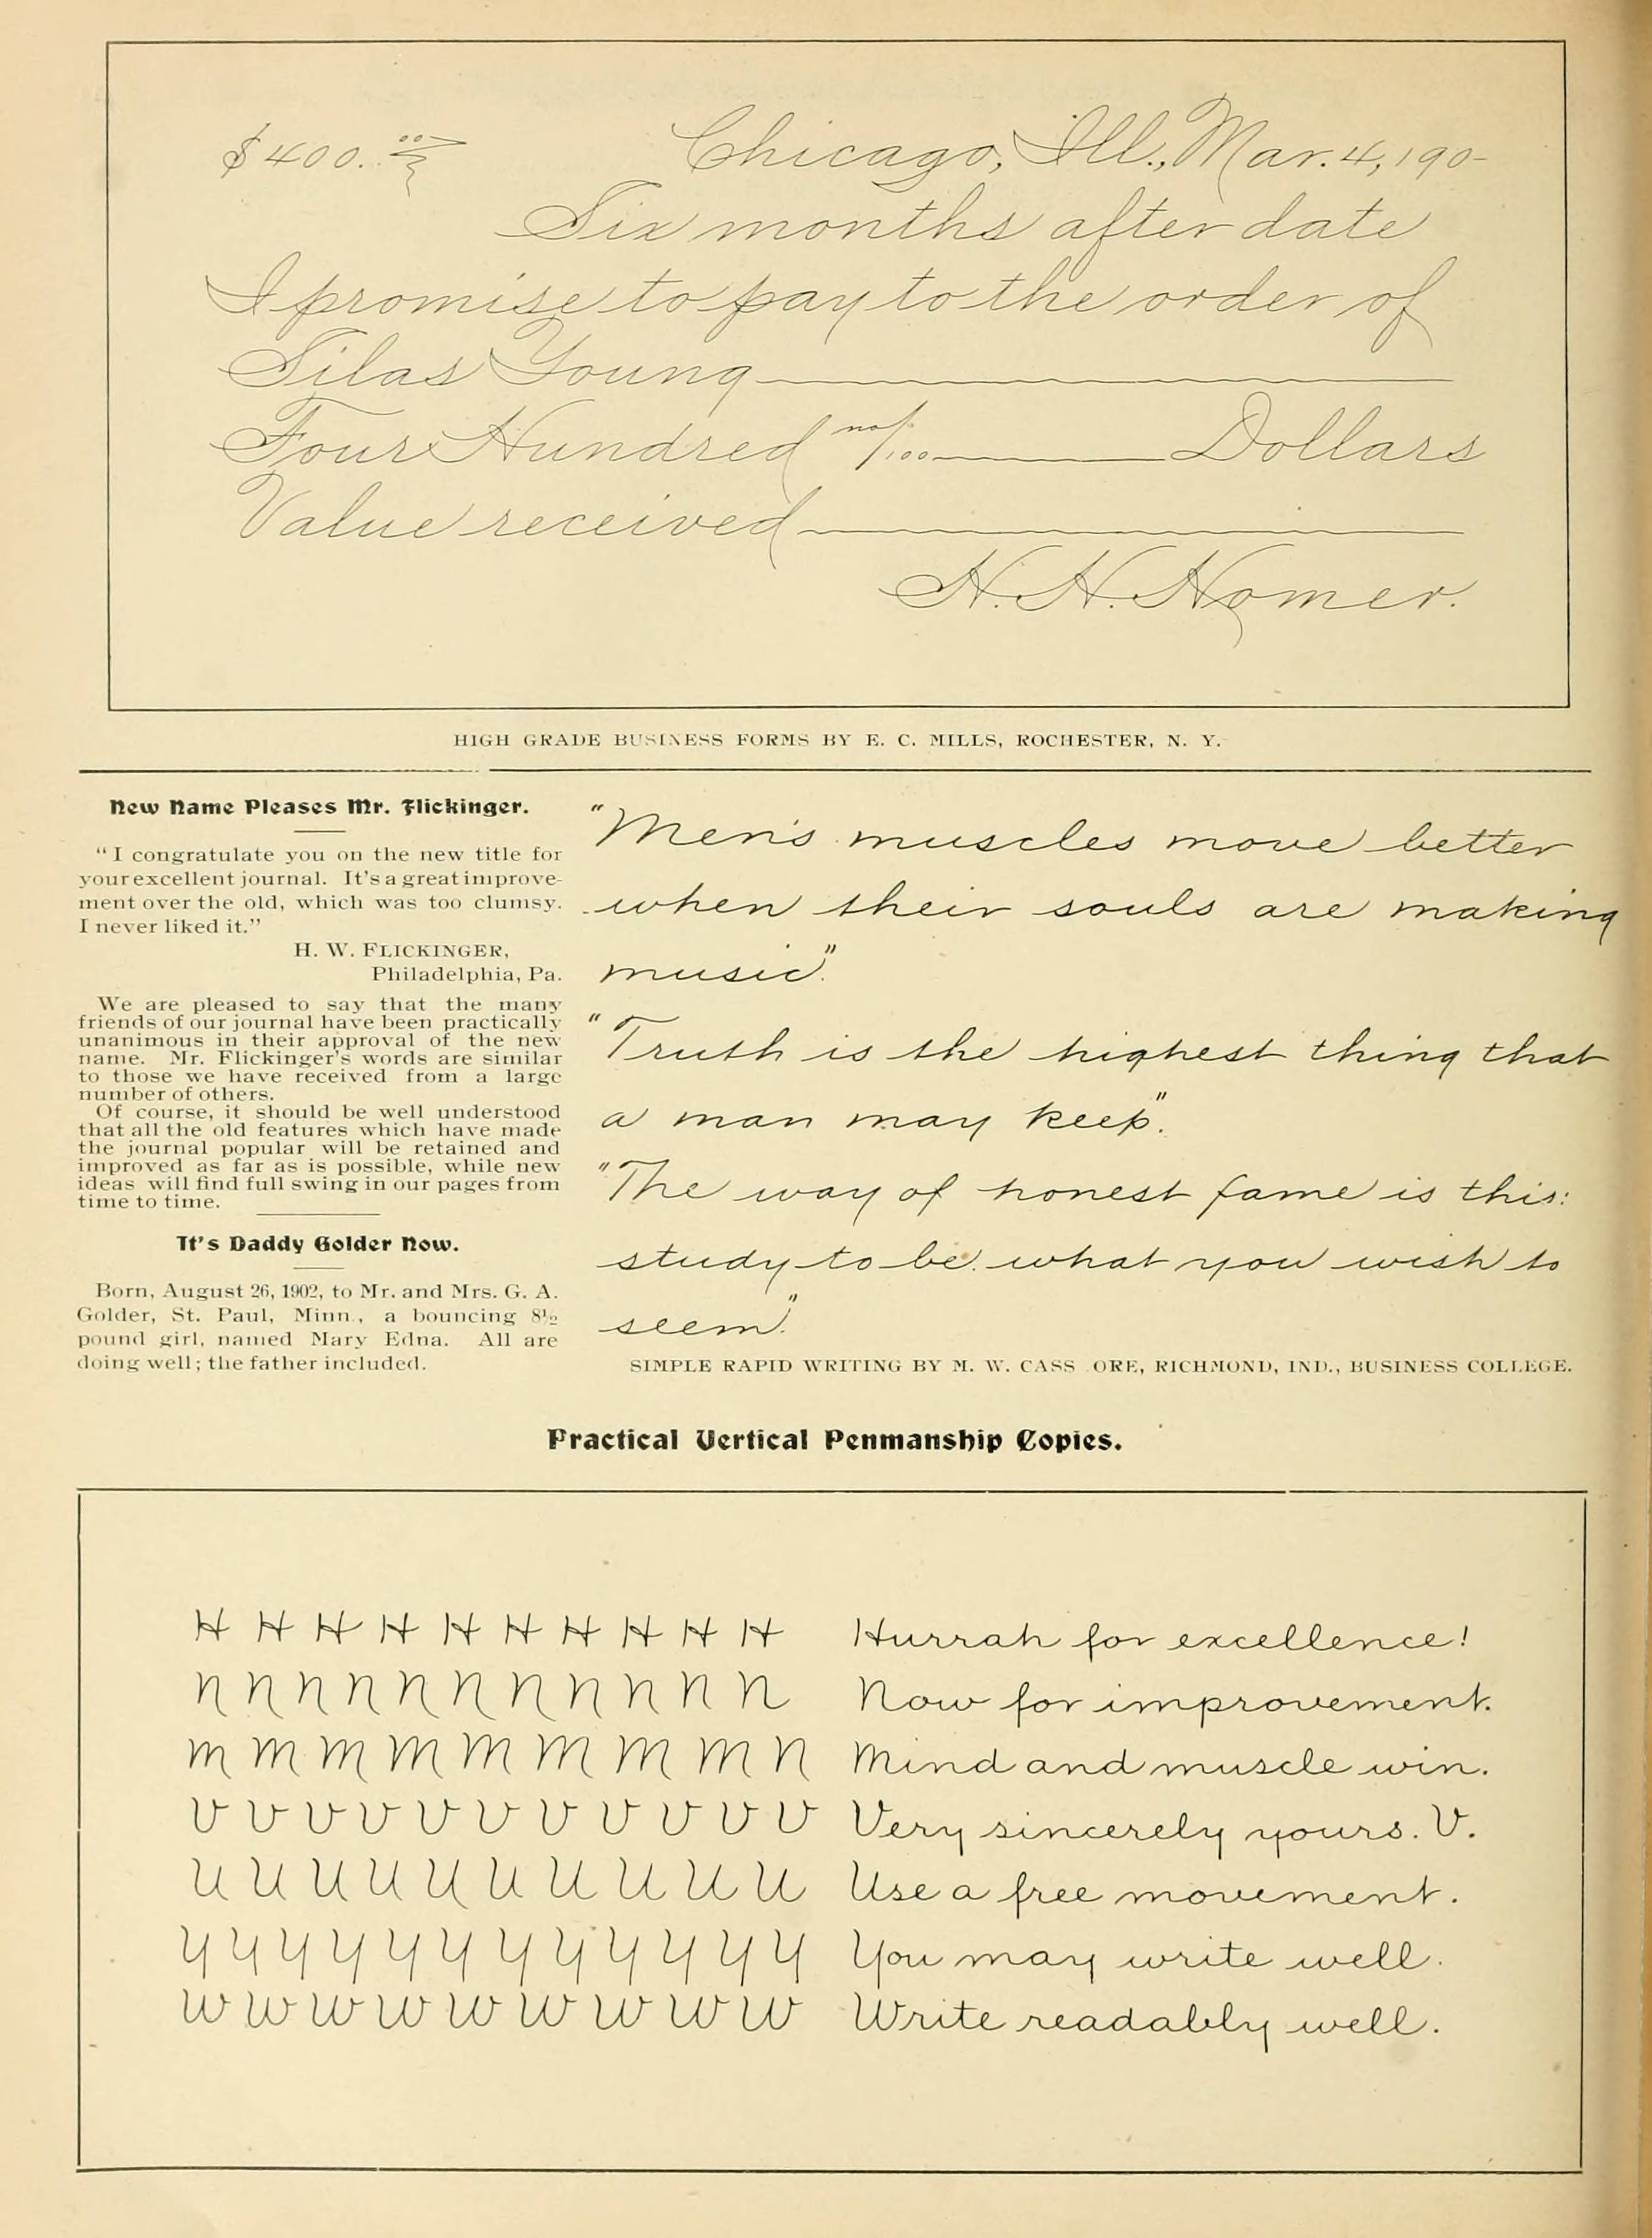 $400.00
Chicago, Ill., Mar. 4, 190-
Six months after date
I promise to pay to the order of
Silas Young
Four Hundred no/100 Dollars
Value received
H. H. Homer.
HIGH GRADE BUSINESS FORMS BY E. C. MILLS, ROCHESTER, N. Y.
New Name Pleases Mr. Flickinger.
"I congratulate you on the new title for
your excellent journal. It's a great improve-
ment over the old, which was too clumsy.
I never liked it."
H. W. FLICKINGER,
Philadelphia, Pa.
We are pleased to say that the many
friends of our journal have been practically
unanimous in their approval of the new
name. Mr. Flickinger's words are similar
to those we have received from a large
number of others.
Of course, it should be well understood
that all the old features which have made
the journal popular will be retained and
improved as far as is possible, while new
ideas will find full swing in our pages from
time to time.
It's Daddy Golder Now.
Born, August 26, 1902, to Mr. and Mrs. G. A.
Golder, St. Paul, Minn., a bouncing 8½
pound girl, named Mary Edna. All are
doing well; the father included.
"Men's muscles move better
when their souls are making
music".
"Truth is the highest thing that
a man may keep".
"The way of honest fame is this:
study to be what you wish to
seem".
SIMPLE RAPID WRITING BY M. W. CASS ORE, RICHMOND, IND., BUSINESS COLLEGE.
Practical Vertical Penmanship Copies.
H H H H H H H H H H Hurrah for excellence!
N N N N N N N N N N N Now for improvement.
M M M M M M M M N Mind and muscle win.
V V V V V V V V V V V Very sincerely yours. V.
U U U U U U U U U U Use a free movement.
Y Y Y Y Y Y Y Y Y Y Y Y You may write well.
W W W W W W W W W Write readably well.